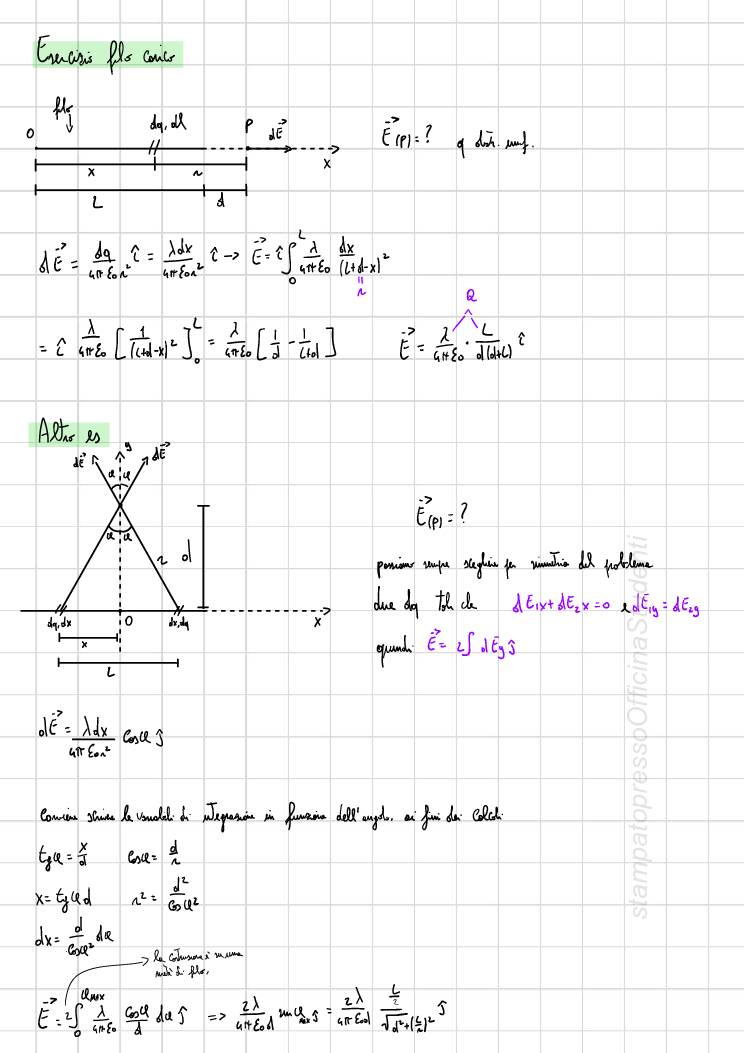 Esercizio filo carico
filo
O dq, dl P dE⃗ x
x r
L d
E⃗(P) = ? q distr. unif.
dE⃗ = dq/(4πε₀r²) î = λdx/(4πε₀r²) î → E⃗ = î ∫₀ᴸ λ/(4πε₀) dx/(L+d-x)²
= r
= î λ/(4πε₀) [1/(L+d-x)²]₀ᴸ = λ/(4πε₀) [1/d - 1/(L+d)]
Q
E⃗ = λ/(4πε₀) · L/(d(d+L)) î
Altro es
y
dE⃗ φ φ dE⃗
φ φ
r d
dq, dx O dx, dq x
x
L
E⃗(P) = ?
possiamo sempre scegliere per simmetria del problema
due dq tali che dE₁x + dE₂x = 0 e dE₁y = dE₂y
quindi E⃗ = 2∫dEy ĵ
dE⃗ = λdx/(4πε₀r²) cosφ ĵ
Conviene scrivere le variabili di integrazione in funzione dell'angolo, ai fini dei calcoli
tgφ = x/d cosφ = d/r
x = tgφ d r² = d²/cosφ²
dx = d/cosφ² dφ
metà di filo,
E⃗ = 2∫₀^φmax λ/(4πε₀) cosφ/d dφ ĵ => 2λ/(4πε₀d) sinφmax ĵ = 2λ/(4πε₀d) (L/2)/√(d²+(L/2)²) ĵ
stampatopressoOfficinaStudenti